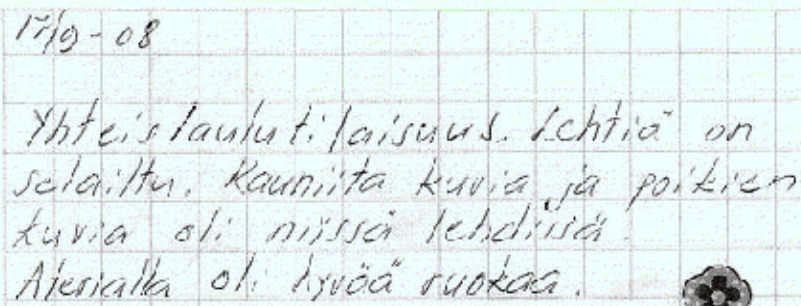 17/9-08
Yhteislaulutilaisuus. Lehtiä on
selailtu. Kauniita kuvia ja poikien
kuvia oli niissä lehdissä.
Aterialla oli hyvää ruokaa.